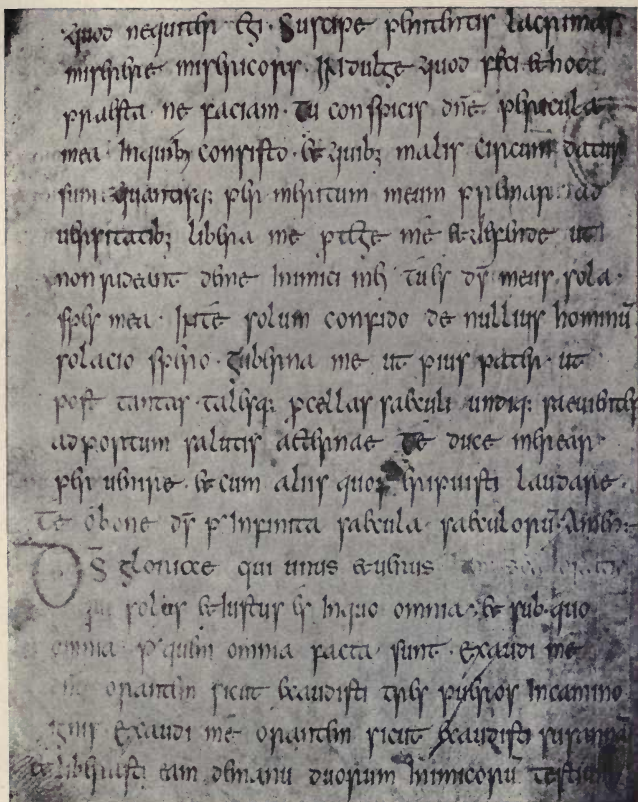 quod nequiter egi. Suscipe penitentis lacrimas
miserere misericors. Indulge quod feci & hoc
praesta. ne faciam. Tu conspicis dn̄e pericula
mea. Inquib; consisto. & quib; malis circum datus
sum. quantisq; per meritum meum premar. ad
uersitatib; libera me ptege me & defende ut
non rideant deme Inimici mei tu es ds̄ meus. sola
spes mea. Inte solum confido de nullius hominū
solacio spero. guberna me ut pius pater. ut
post tantas. talesq; pcellas saeculi undiq; saeuientes
adportum salutis aeternae te duce merear
per uenire. & cum aliis quos eripuisti laudare.
Te obone ds̄ p Infinita saecula. saeculorū. Amen:
DS̄ gloriae qui unus & uerus
qui solus & Iustus es Inquo omnia. & sub quo
omnia. p quem omnia facta sunt. Exaudi me
orantem sicut exaudisti tres pueros Incamino
ignis Exaudi me orantem sicut exaudisti susanna
& liberasti eam demanu duorum Inimicorū testium